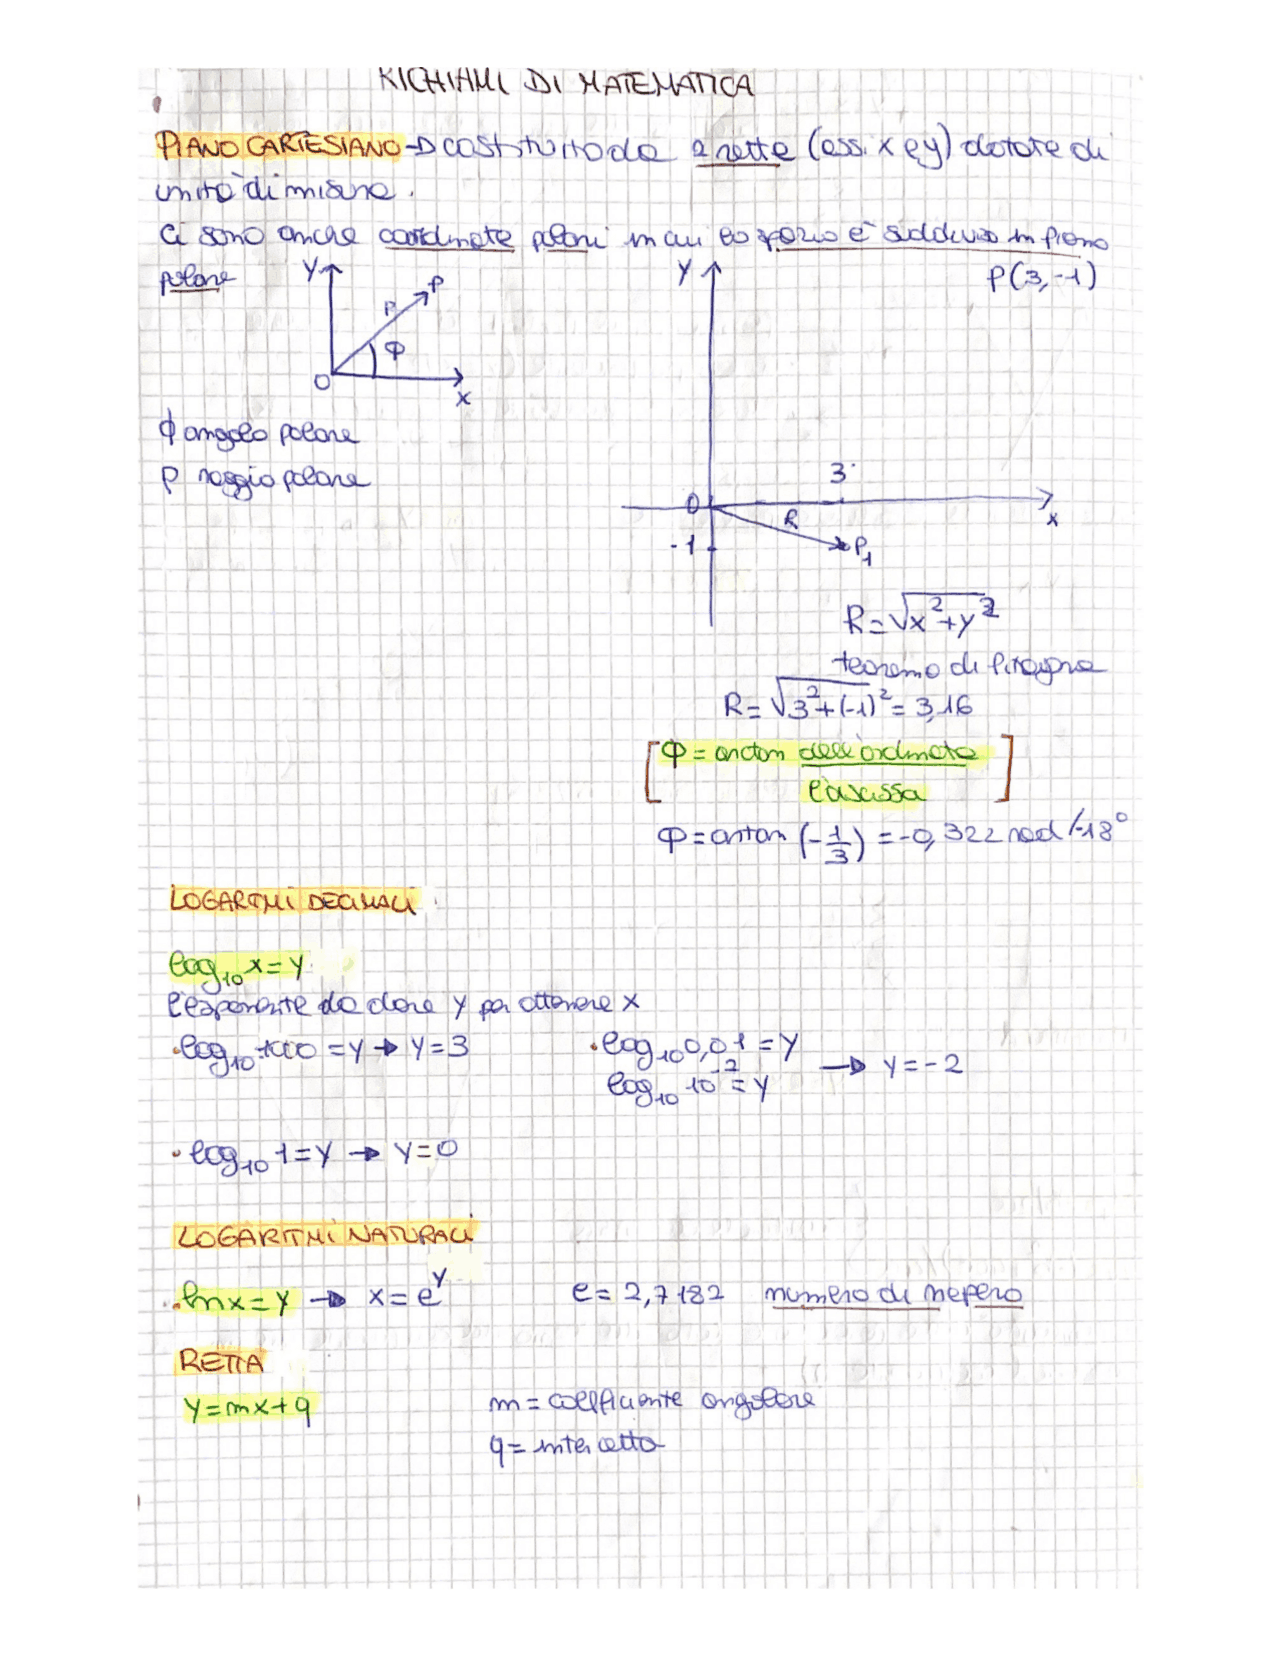 RICHIAMI DI MATEMATICA
PIANO CARTESIANO → costituito da 2 rette (assi x e y) dotate di
unità di misura.
Ci sono anche coordinate polari in cui lo spazio è suddiviso in piano
polare
Y
P
ρ
Φ
O
x
Y
P(3,-1)
ϕ angolo polare
ρ raggio polare
3
0
R
x
-1
P₁
R=√x²+y²
teorema di Pitagora
R=√3²+(-1)²=3,16
[Φ = arctan dell'ordinata / l'ascissa]
Φ=artan (-1/3) = -0,322 rad /-18°
LOGARITMI DECIMALI
log₁₀ x=y
l'esponente da dare y per ottenere x
•log₁₀ 1000 = y → y=3
•log₁₀ 0,01 = y
log₁₀ 10⁻² = y → y=-2
•log₁₀ 1=y → y=0
LOGARITMI NATURALI
•lnx=y → x=e^y e= 2,7182 numero di nepero
RETTA
y=mx+q m = coefficiente angolare
q= intercetta